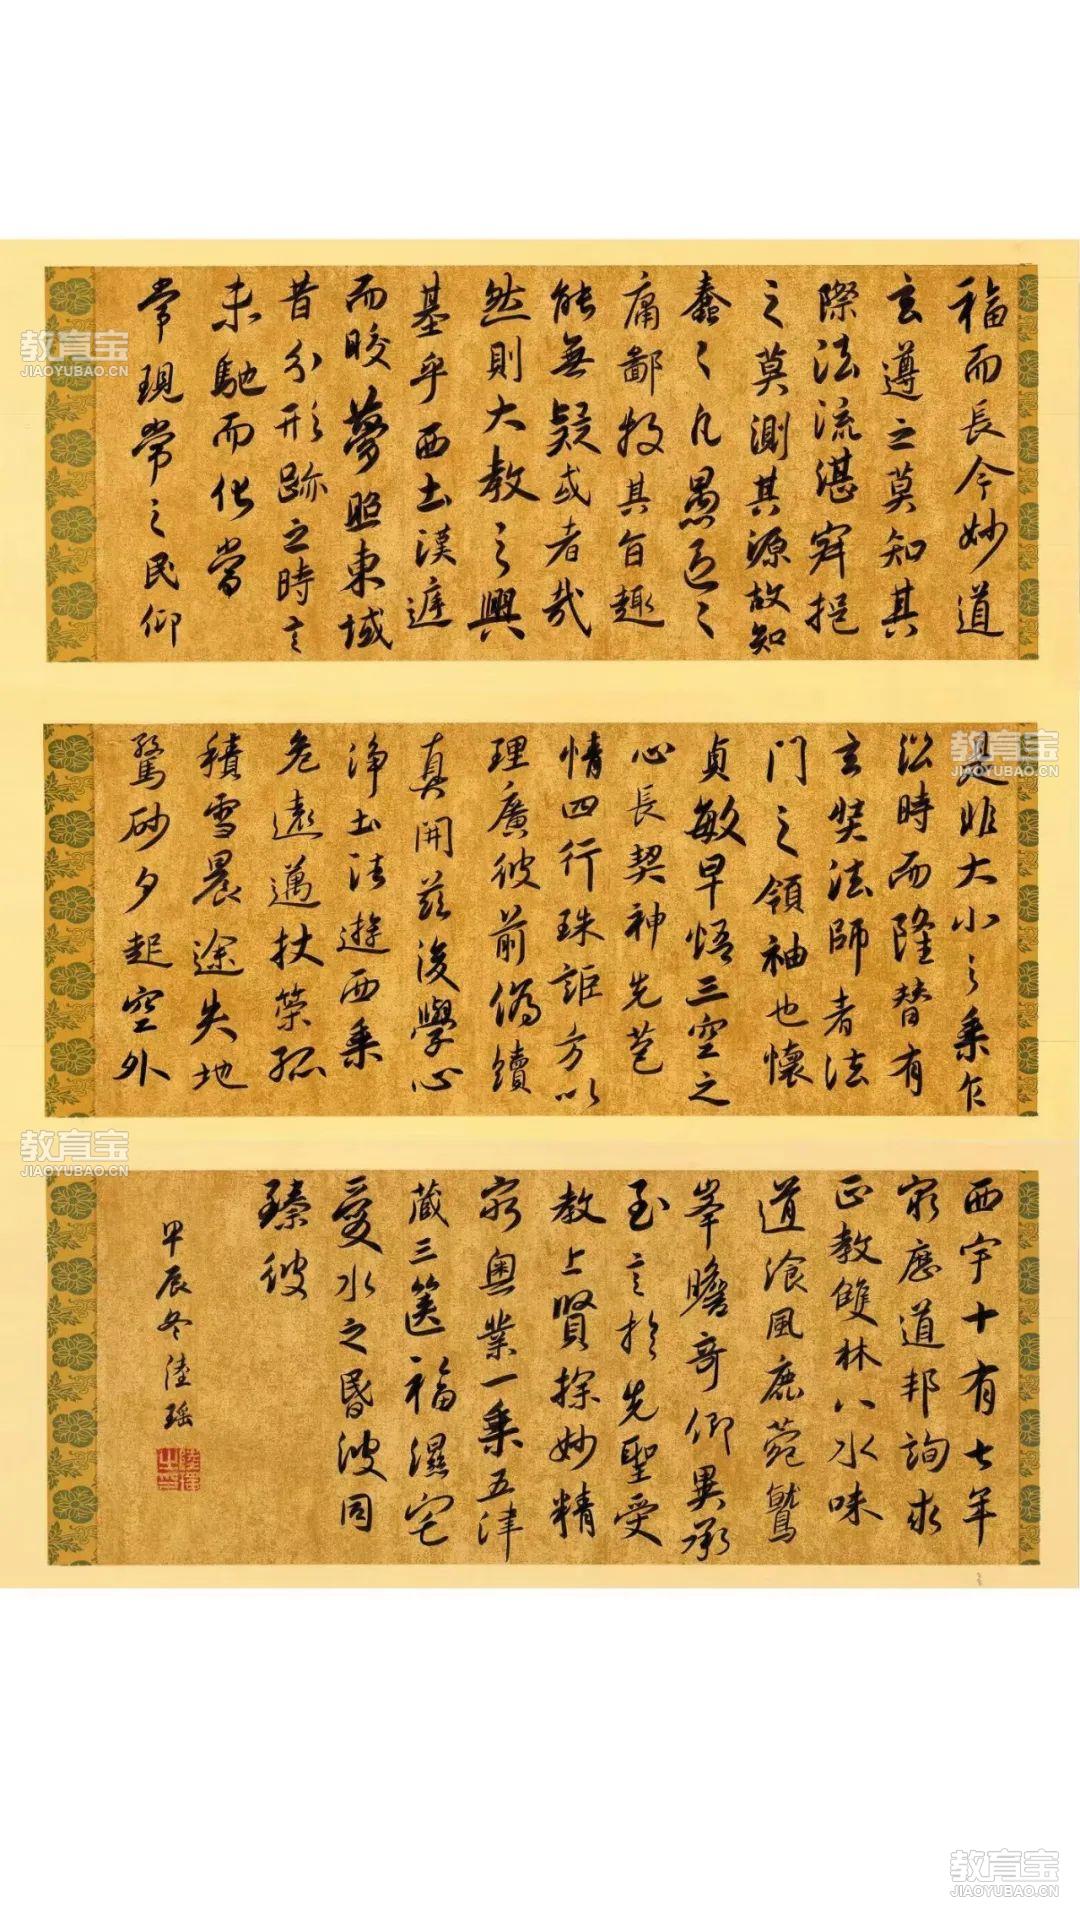 福而長今妙道
玄遵之莫知其
際法流湛寂挹
之莫測其源故知
蠢〻凡愚區〻
庸鄙投其旨趣
能無疑或者哉
然則大教之興
基乎西土漢遅
而皎夢照東域
昔分形跡之時言
未馳而化當
常現常之民仰
是非大小之乘乍
㳂時而隆替有
玄奘法師者法
門之領袖也懷
貞敏早悟三空之
心長契神先苞
情四行珠詎方以
理廣彼前偽續
真開茲後學心
淨土法遊西乘
危遠邁杖策孤
積雪晨途失地
驚砂夕起空外
西宇十有七年
窮歷道邦詢求
正教雙林八水味
道飡風鹿菀鷲
峯瞻奇仰異承
至言於先聖受
教上賢探妙精
窮奧業一乘五津
蔵三篋福濕宅
愛水之昬波同
臻彼
甲辰冬陸瑶
教育宝
JIAOYUBAO.CN
教育宝
JIAOYUBAO.CN
教育宝
JIAOYUBAO.CN
教育宝
JIAOYUBAO.CN